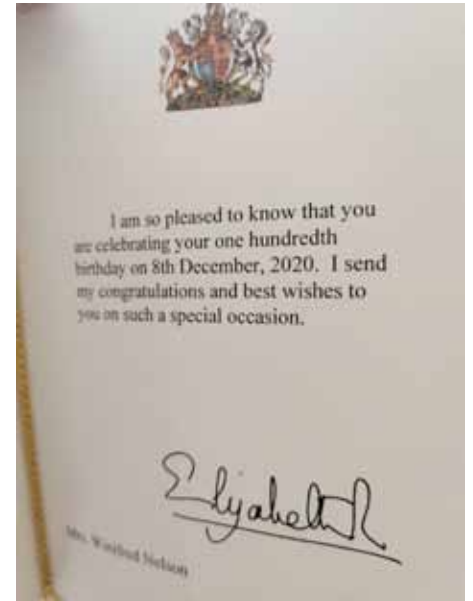 I am so pleased to know that you
are celebrating your one hundredth
birthday on 8th December, 2020. I send
my congratulations and best wishes to
you on such a special occasion.
Elizabeth R
Mrs. Winifred Nelson